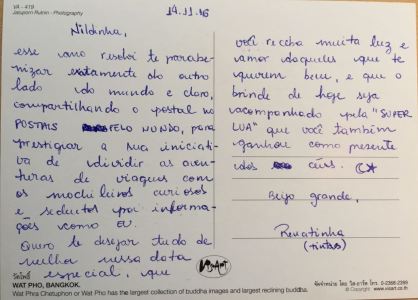 VA - 419
Jatuporn Rutnin - Photography
14.11.16
Nildinha,
esse ano resolvi te parabe-
nizar exatamente do outro
lado do mundo e claro,
compartilhando o postal no
POSTAIS PELO MUNDO, para
prestigiar a sua iniciati-
va de dividir as aven-
turas de viagens com
os mochileiros curiosos
e sedutos por informa-
ções como eu.
Quero te desejar tudo de
melhor nessa data
especial, que
você receba muita luz e
amor daqueles que te
querem bem, e que o
brinde de hoje seja
acompanhado pela "SUPER
LUA" que você também
ganhou como presente
dos céus.
Beijo grande,
Renatinha
(tintas)
วัดโพธิ์
WAT PHO, BANGKOK.
Wat Phra Chetuphon or Wat Pho has the largest collection of buddha images and largest reclining buddha.
จัดจำหน่าย โดย วิสอาร์ต โทร. 0-2368-2289
© Copyright www.visart.co.th